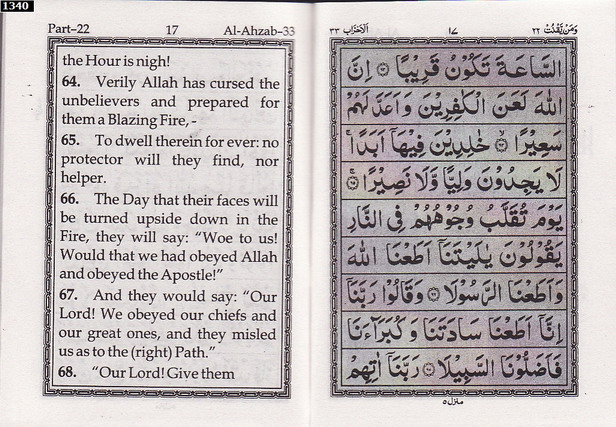 1340
Part–22 17 Al-Ahzab–33
the Hour is nigh!
64. Verily Allah has cursed the
unbelievers and prepared for
them a Blazing Fire,-
65. To dwell therein for ever: no
protector will they find, nor
helper.
66. The Day that their faces will
be turned upside down in the
Fire, they will say: “Woe to us!
Would that we had obeyed Allah
and obeyed the Apostle!”
67. And they would say: “Our
Lord! We obeyed our chiefs and
our great ones, and they misled
us as to the (right) Path.”
68. “Our Lord! Give them
وَمَن يَّقْنُتْ ٢٢ ١٧ اَلْاَحْزَاب ٣٣
السَّاعَةَ تَكُوْنُ قَرِيْبًا ۝٦٣ اِنَّ
اللّٰهَ لَعَنَ الْكٰفِرِيْنَ وَاَعَدَّ لَهُمْ
سَعِيْرًا ۝٦٤ خٰلِدِيْنَ فِيْهَآ اَبَدًا ۚ
لَا يَجِدُوْنَ وَلِيًّا وَّلَا نَصِيْرًا ۝٦٥
يَوْمَ تُقَلَّبُ وُجُوْهُهُمْ فِى النَّارِ
يَقُوْلُوْنَ يٰلَيْتَنَآ اَطَعْنَا اللّٰهَ
وَاَطَعْنَا الرَّسُوْلَا ۝٦٦ وَقَالُوْا رَبَّنَآ
اِنَّآ اَطَعْنَا سَادَتَنَا وَكُبَرَآءَنَا
فَاَضَلُّوْنَا السَّبِيْلَا ۝٦٧ رَبَّنَآ اٰتِهِمْ
منزل ٥